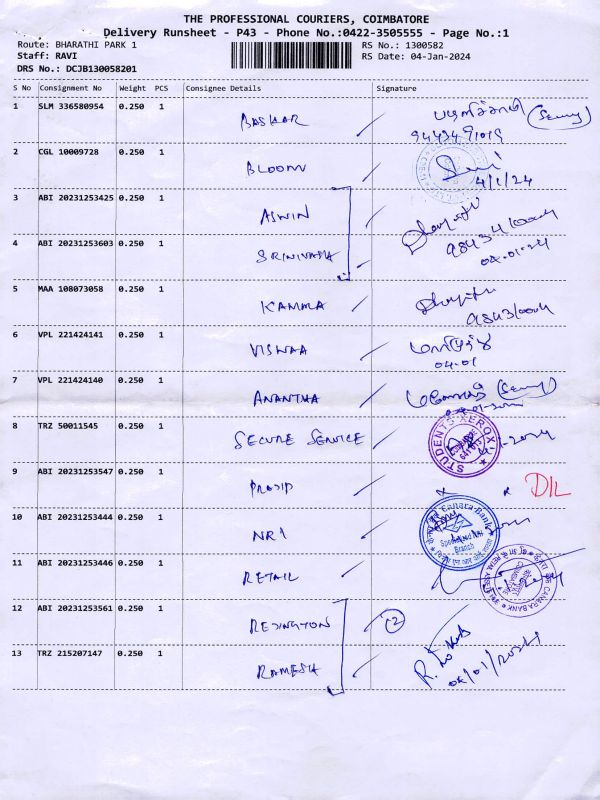 THE PROFESSIONAL COURIERS, COIMBATORE
Delivery Runsheet - P43 - Phone No.:0422-3505555 - Page No.:1
Route: BHARATHI PARK 1
RS No.: 1300582
Staff: RAVI
RS Date: 04-Jan-2024
DRS No.: DCJB130058201
S No Consignment No Weight PCS Consignee Details Signature
1 SLM 336580954 0.250 1 BASKAR
2 CGL 10009728 0.250 1 BLOOM
4/1/24
3 ABI 20231253425 0.250 1 ASWIN
4 ABI 20231253603 0.250 1 SRINIVASA
04-01-24
5 MAA 108073058 0.250 1 KAMMA
6 VPL 221424141 0.250 1 VISWAA
04-01
7 VPL 221424140 0.250 1 ANANTHA
8 TRZ 50011545 0.250 1 SECURE SERVICE
STUDENTS XEROX
9 ABI 20231253547 0.250 1
DIL
10 ABI 20231253444 0.250 1 NRI
Canara Bank
Branch
11 ABI 20231253446 0.250 1 RETAIL
CANARA BANK
12 ABI 20231253561 0.250 1 REDINGTON (2)
13 TRZ 215207147 0.250 1 RAMESH
04/01/2024